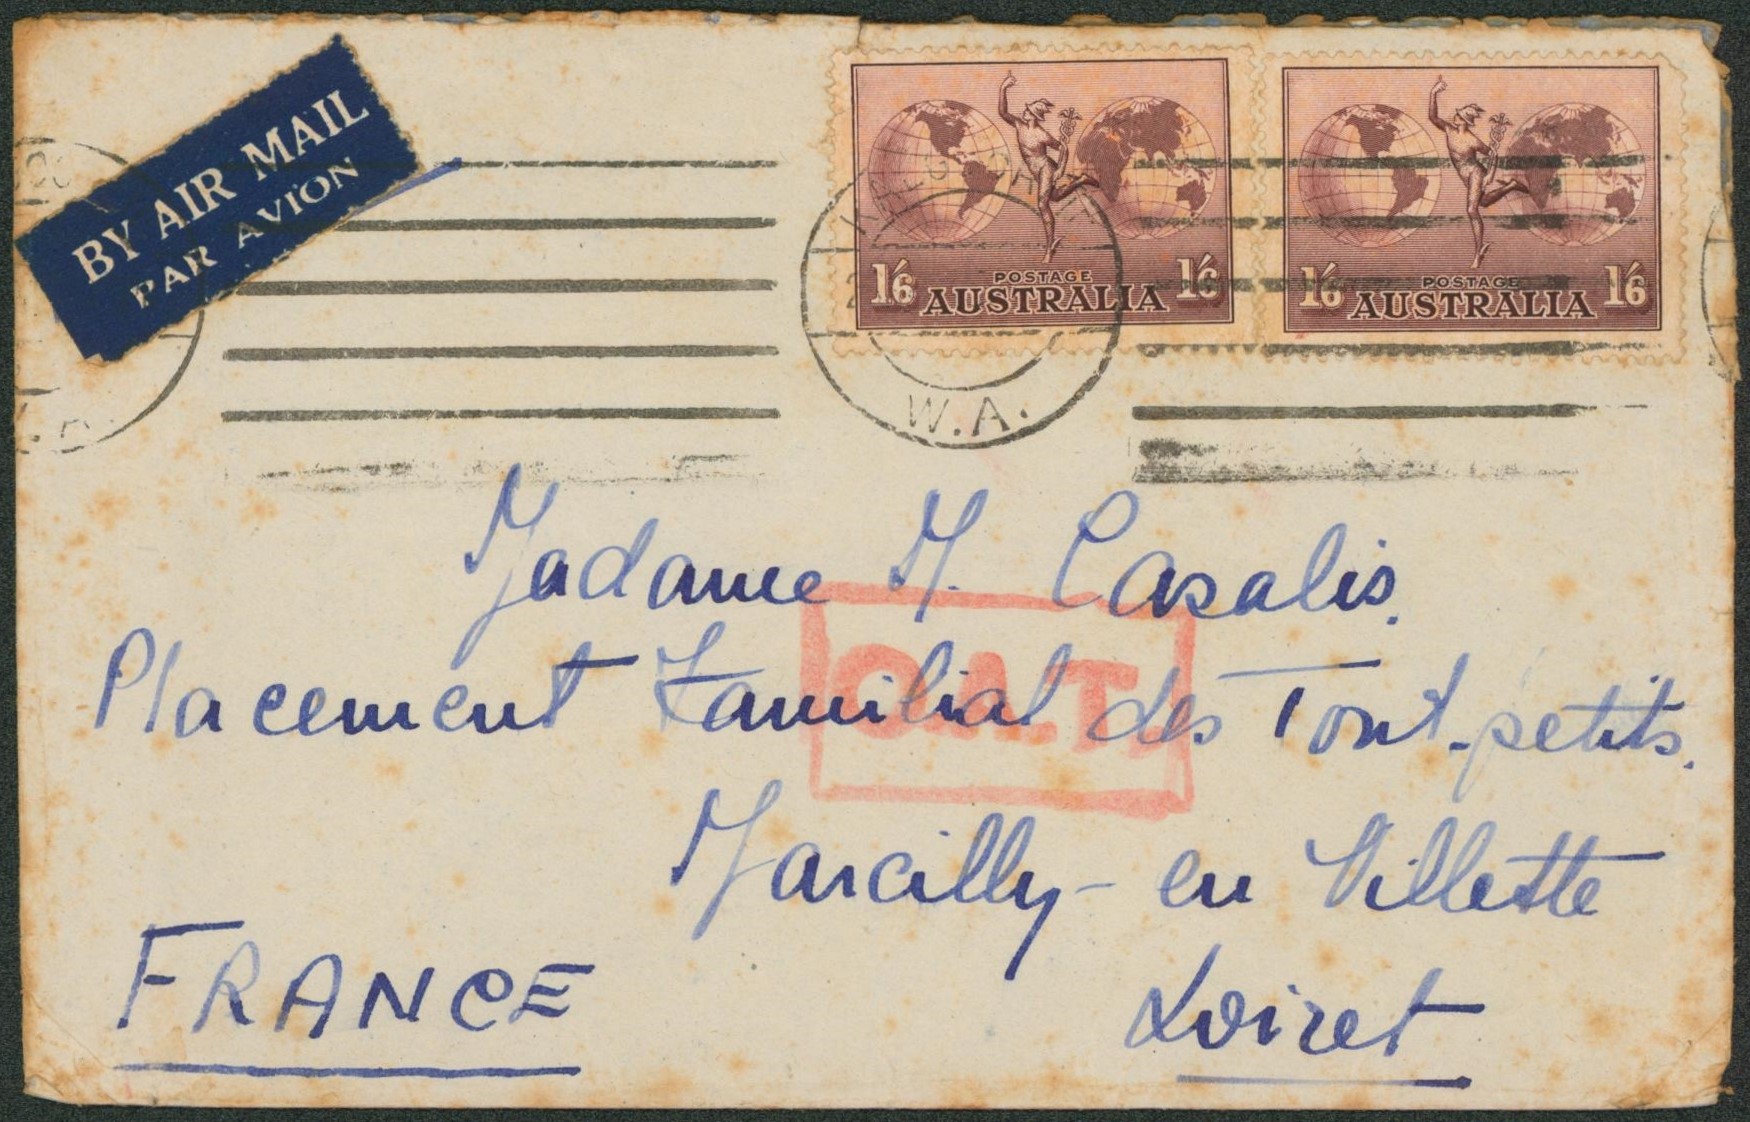 BY AIR MAIL
PAR AVION
1/6 POSTAGE 1/6
AUSTRALIA
1/6 POSTAGE 1/6
AUSTRALIA
W.A.
Madame M. Casalis.
O.A.T.
Placement Familial des Tout-petits.
Marcilly-en Villette
Loiret
FRANCE